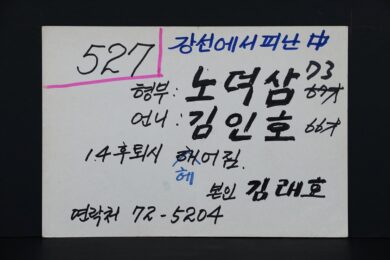 527
강선에서 피난 中
73
형부: 노덕삼 67才
언니: 김인호 66才
1.4 후퇴시 해어짐.
헤
본인 김래호
연락처 72-5204